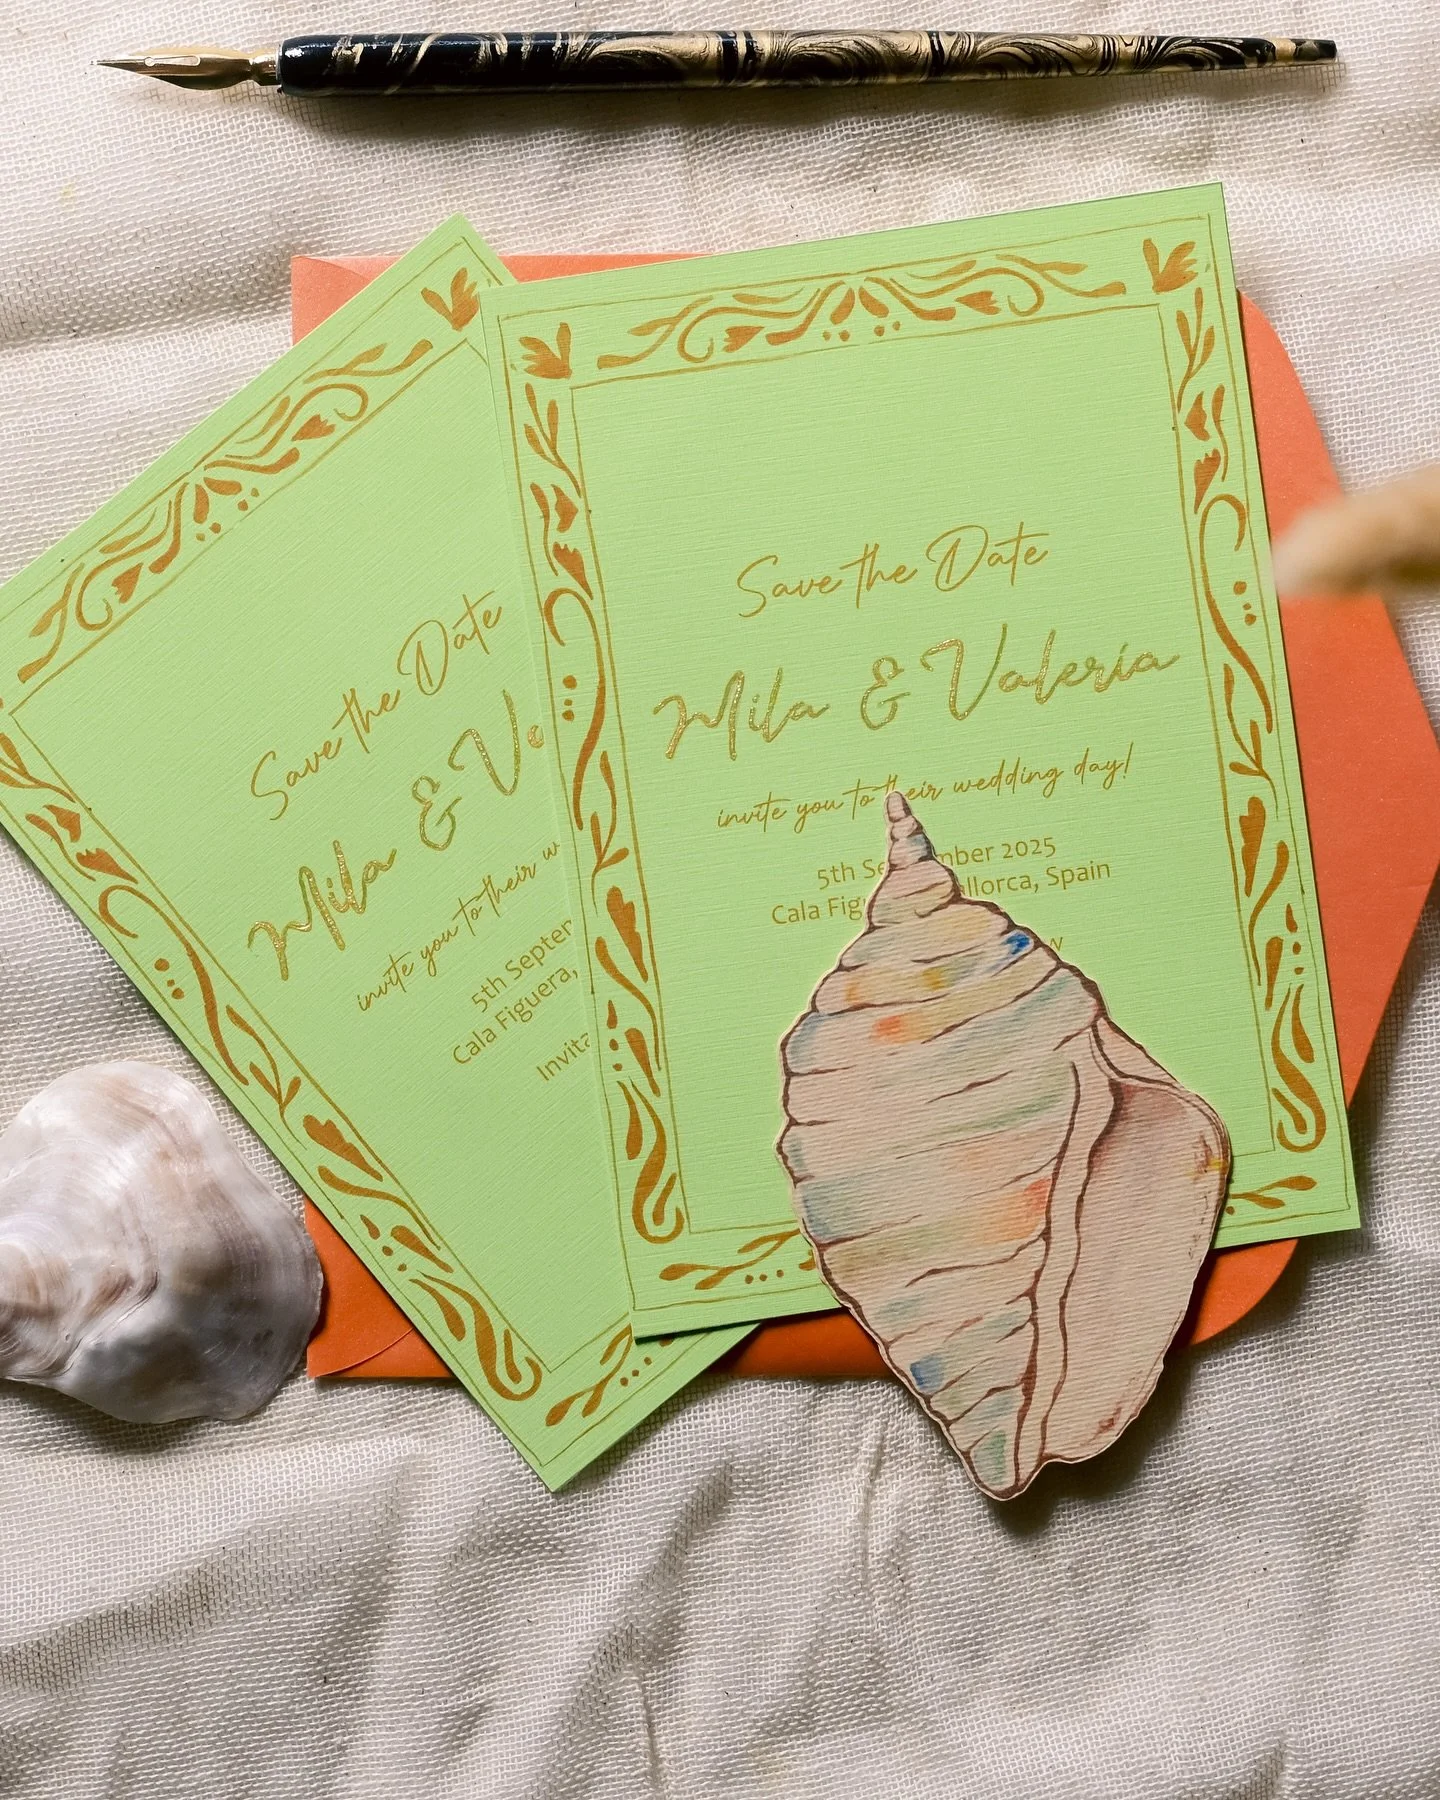 Save the Date
Mila & Ve
invite you to their w
5th Septem
Cala Figuera,
Invita
Save the Date
Mila & Valeria
invite you to their wedding day!
5th Se mber 2025
Cala Fig allorca, Spain
w